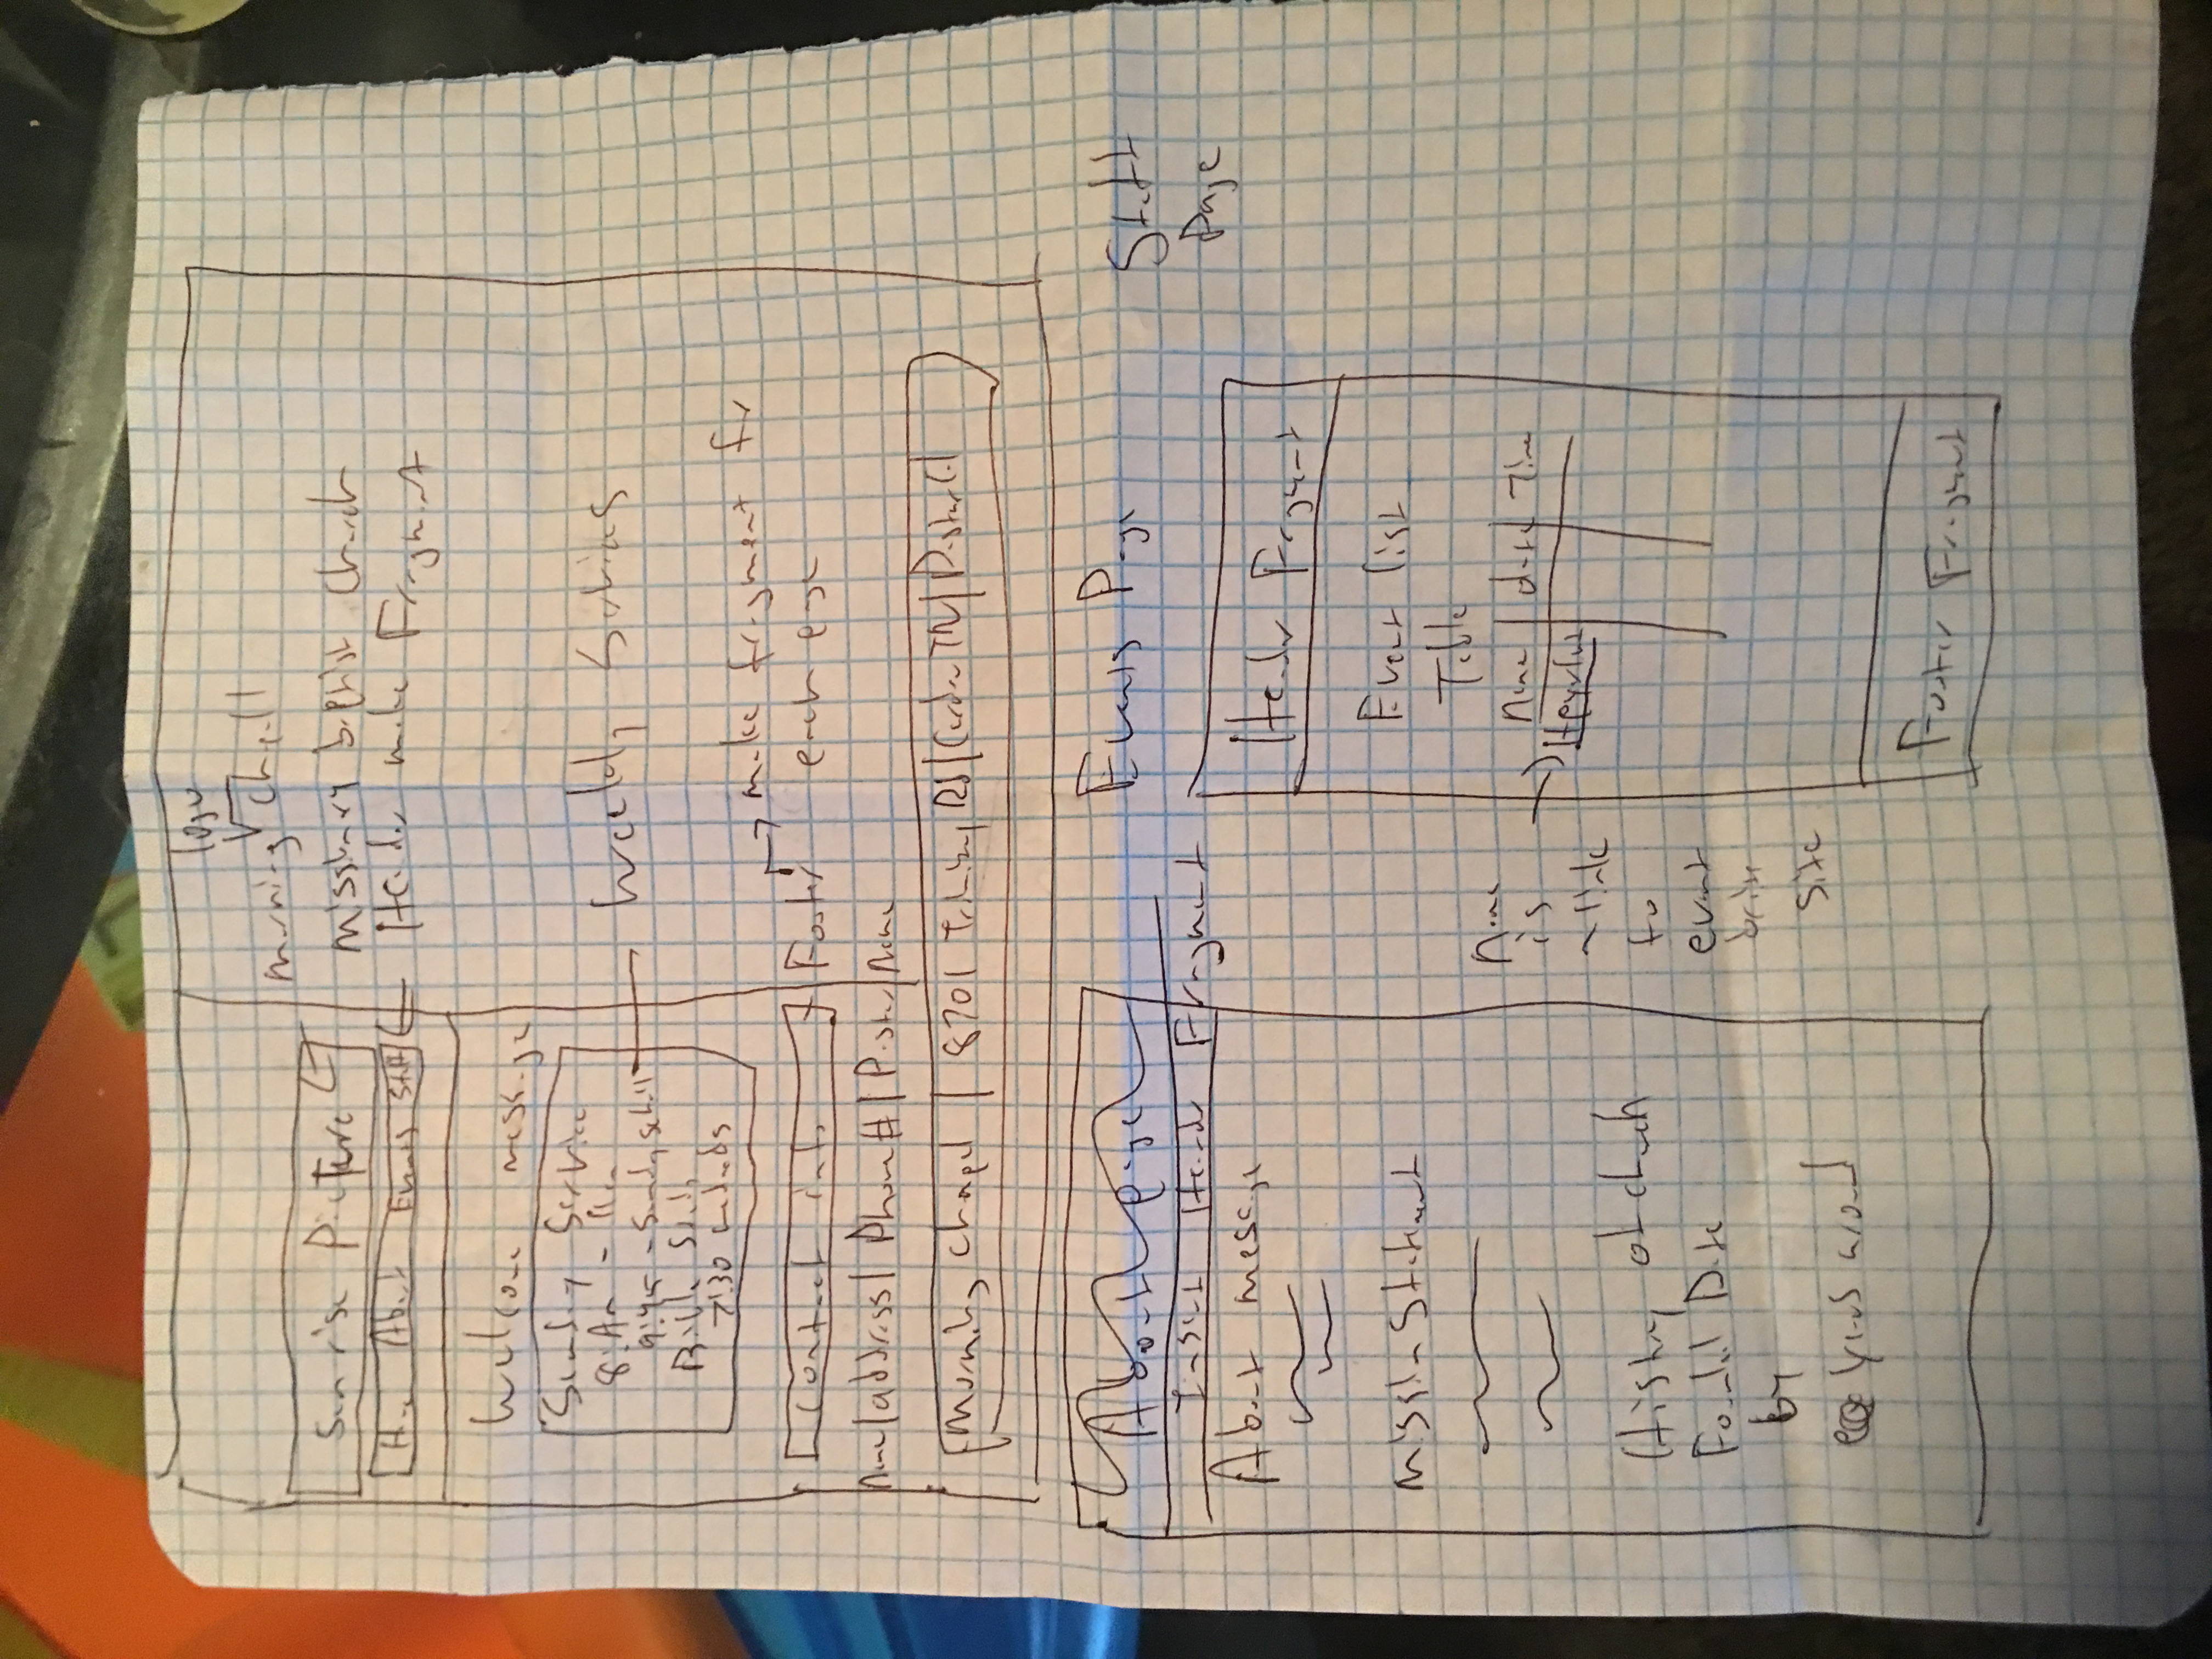 logo
morning Chapel
Sunrise Picture
missionary baptist Church
Home About Events Staff
Header make Fragment
Welcome message
Sunday Service
8:Am - 11am
9:45 - Sunday school
Bible Study
7:30
Weekly Services
make fragment for
each page
Contact info
Footer
Name/address/Phone #/Pastor/Name
Morning Chapel / 8701 Rd/ TN/Pastor
About page
Insert Header Fragment
About message
mission Statement
History of church
Founded Date
by
years around
Events Page
Header Fragment
Event list
Table
Name date Time
Name
is
a link
to
event
brite
site
Footer Fragment
Staff
Page